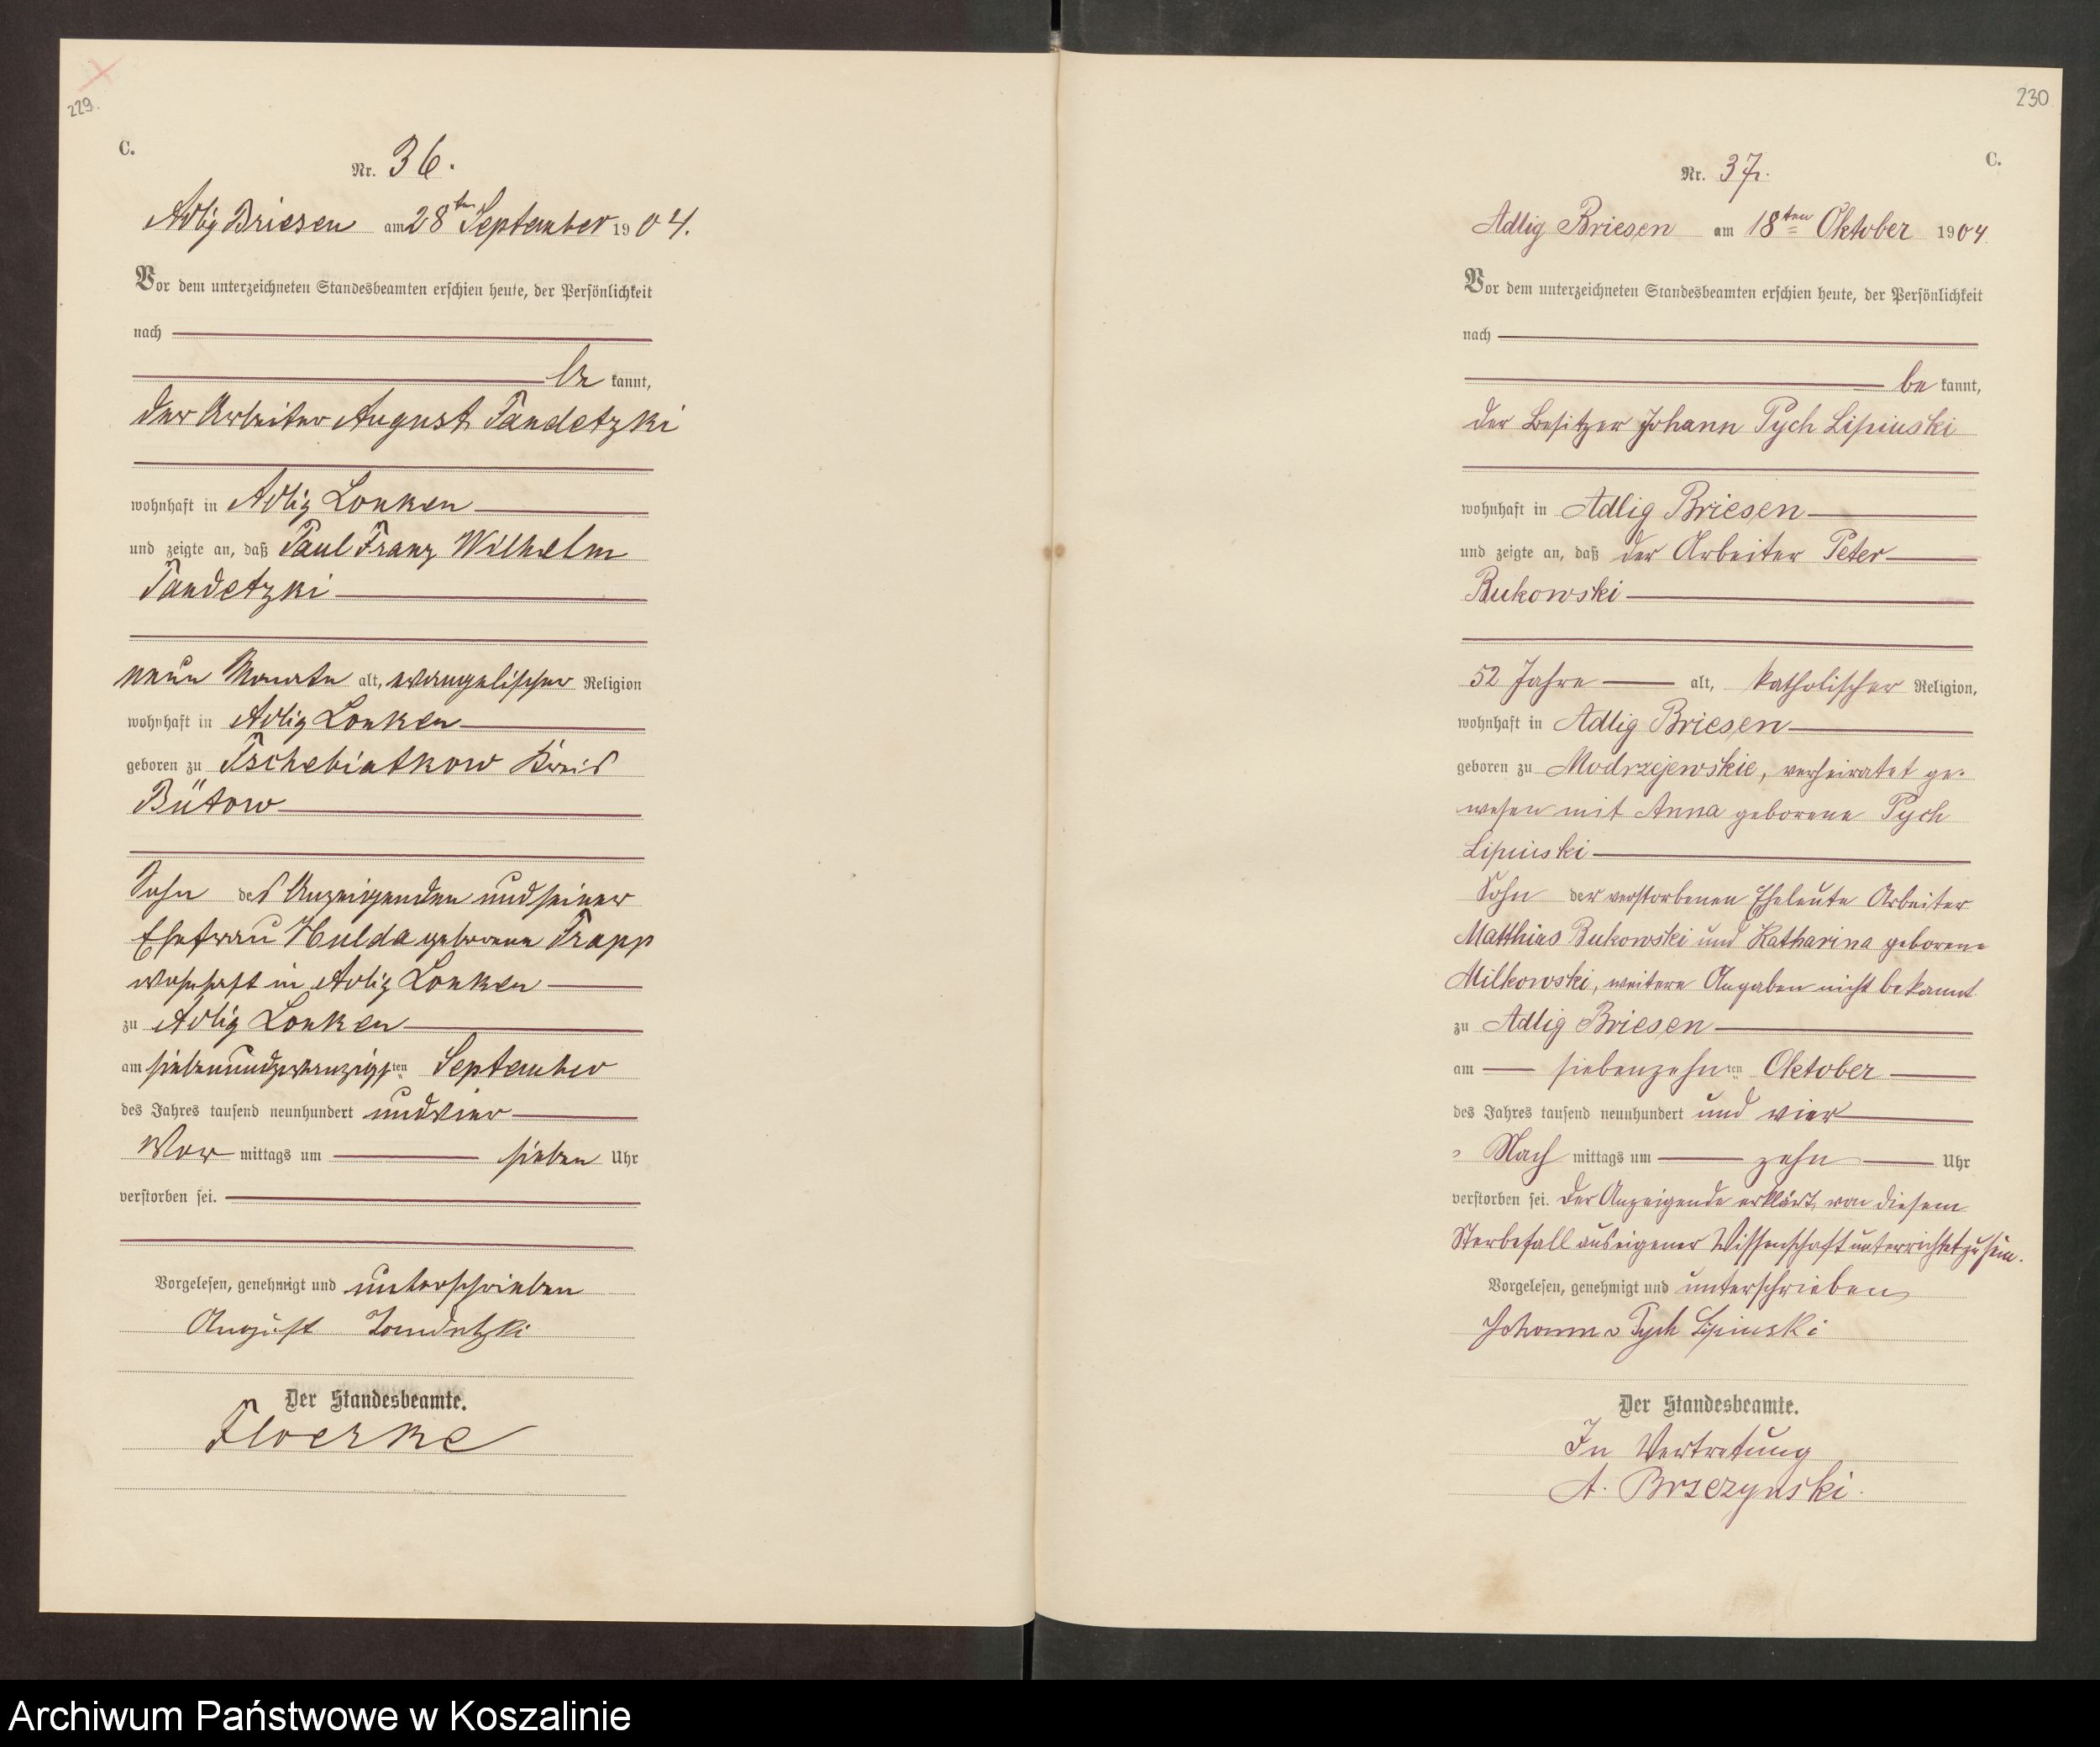 229.
C.
Nr. 36.
Adlig Briesen am 28ten September 1904.
Vor dem unterzeichneten Standesbeamten erschien heute, der Persönlichkeit
nach
be kannt,
der Arbeiter August Tandetzki
wohnhaft in Adlig Lonken
und zeigte an, daß Paul Franz Wilhelm
Tandetzki
neun Monate alt, evangelischer Religion
wohnhaft in Adlig Lonken
geboren zu Tschebiatkow Kreis
Bütow
Sohn des Anzeigenden und seiner
Ehefrau Hulda geborene Trapp
wohnhaft in Adlig Lonken
zu Adlig Lonken
am siebenundzwanzigsten September
des Jahres tausend neunhundert und vier
Vor mittags um sieben Uhr
verstorben sei.
Vorgelesen, genehmigt und unterschrieben
August Tandetzki
Der Standesbeamte.
Floerke
230
C.
Nr. 37.
Adlig Briesen am 18ten Oktober 1904
Vor dem unterzeichneten Standesbeamten erschien heute, der Persönlichkeit
nach
be kannt,
der Besitzer Johann Pych Lipinski
wohnhaft in Adlig Briesen
und zeigte an, daß der Arbeiter Peter
Bukowski
52 Jahre alt, katholischer Religion,
wohnhaft in Adlig Briesen
geboren zu Modrzejewskie, verheiratet ge-
wesen mit Anna geborene Pych
Lipinski
Sohn der verstorbenen Eheleute Arbeiter
Matthias Bukowski und Katharina geborene
Milkowski, weitere Angaben nicht bekannt
zu Adlig Briesen
am siebenzehnten Oktober
des Jahres tausend neunhundert und vier
Nach mittags um zehn Uhr
verstorben sei. Der Anzeigende erklärt, von diesem
Sterbefall aus eigener Wissenschaft unterrichtet zu sein.
Vorgelesen, genehmigt und unterschrieben
Johann v Pych Lipinski
Der Standesbeamte.
In Vertretung
A. Brzezynski.
Archiwum Państwowe w Koszalinie